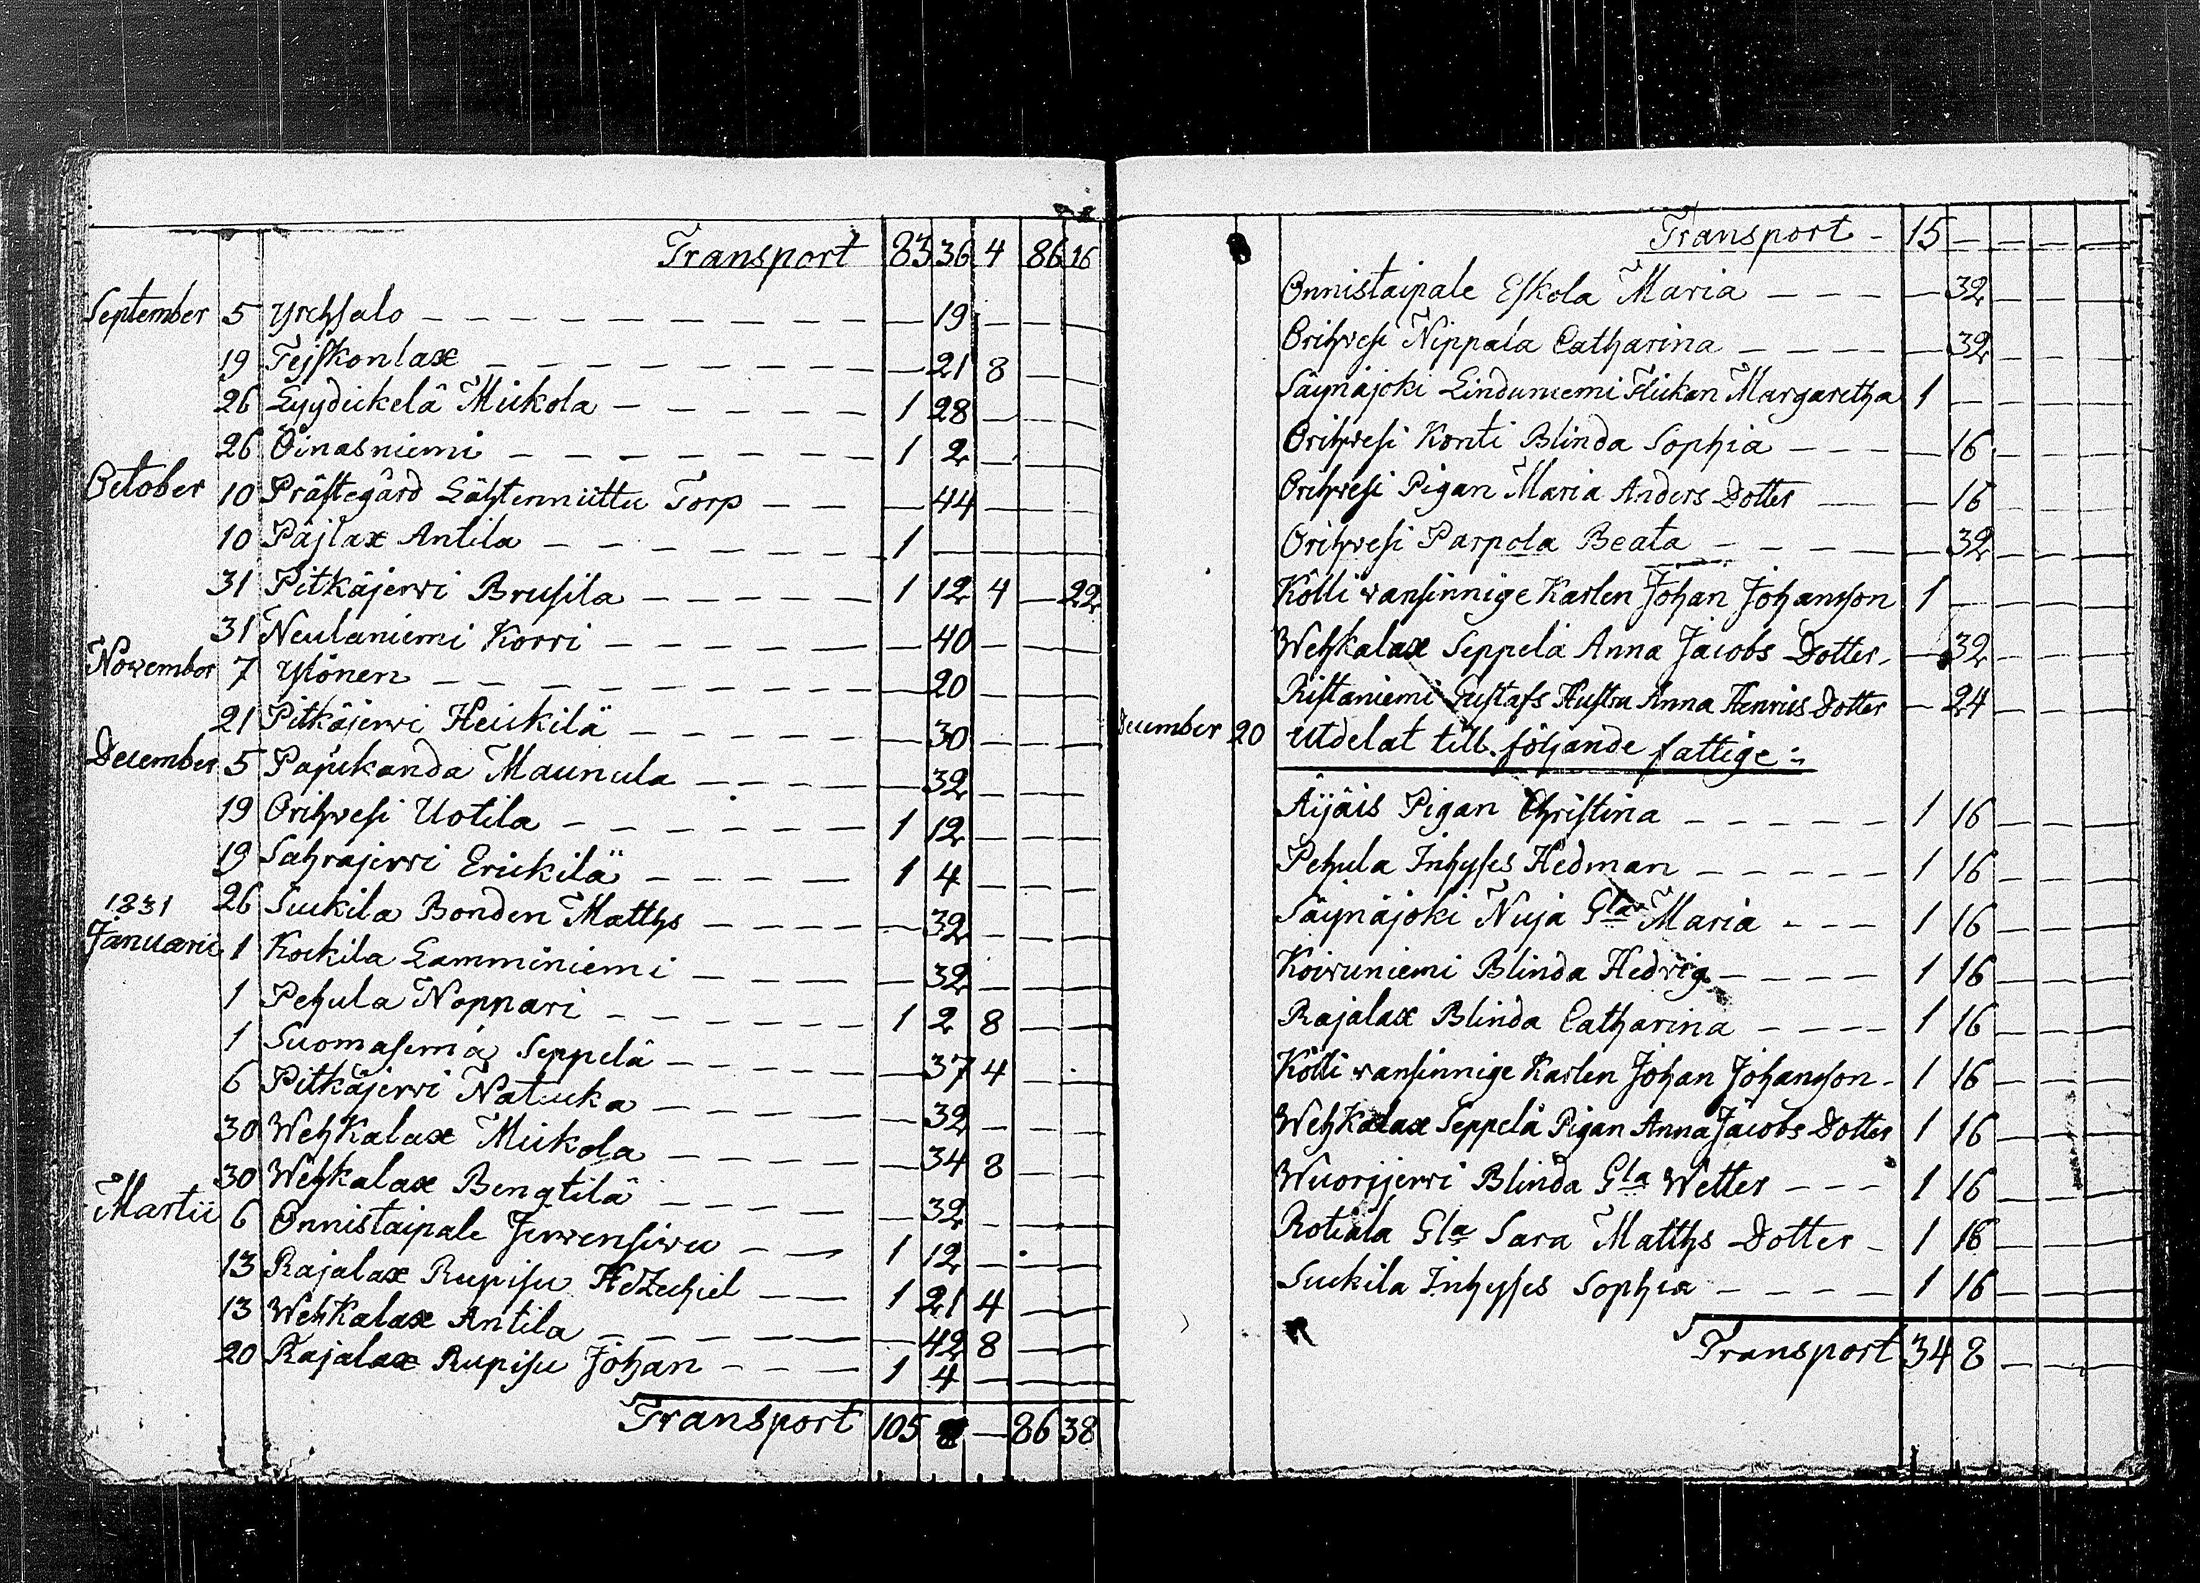 Transport 83 36 4 86 16
September 5 Yrchsalo — 19 — — —
19 Tejskonlax — 21 8 — —
26 Lyydickelä Mickola 1 28 — — —
26 Oinasniemi 1 2 — — —
October 10 Prästegård Lähtenniittu Torp — 44 — — —
10 Päjlax Antila 1 — — — —
31 Pitkäjerwi Brusila 1 12 4 — 22
31 Neulaniemi Korri — 40 — — —
November 7 Ylönen — 20 — — —
21 Pitkäjerwi Heickilä — 30 — — —
December 5 Papukanda Maunula — 32 — — —
19 Orihvesi Uotila 1 12 — — —
19 Sahrajerwi Erickilä 1 4 — — —
26 Suckila Bonden Matths — 32 — — —
1831
Januarii 1 Kockila Lamminiemi — 32 — — —
1 Pehula Noppari 1 2 8 — —
1 Suomasemä Seppelä — 37 4 — —
6 Pitkäjerwi Natucka — 32 — — —
30 Wehkalax Mickola — 34 8 — —
30 Wehkalax Bengtilä — 32 — — —
Martii 6 Onnistaipale Jerwensiwu 1 12 — — —
13 Rajalax Rupisu Hezechiel 1 21 4 — —
13 Wehkalax Antila — 42 8 — —
20 Rajalax Rupisu Johan 1 4 — — —
Transport 105 8 — 86 38
Transport - 15 — — — —
Onnistaipale Eskola Maria — 32 — — —
Orihvesi Nippala Catharina — 32 — — —
Säynäjoki Linduniemi Flickan Margaretha 1 — — — —
Orihvesi Konti Blinda Sophia — 16 — — —
Orihvesi Pigan Maria Anders Dotter — 16 — — —
Orihvesi Parpola Beata — 32 — — —
Kölli vansinnige Karlen Johan Johansson 1 — — — —
Wehkalax Seppelä Anna Jacobs Dotter — 32 — — —
Ristaniemi Gustafs Hustru Anna Henrics Dotter — 24 — — —
December 20 Utdelat till följande fattige:
Äijäis Pigan Christina 1 16 — — —
Pehula Inhyses Hedman 1 16 — — —
Säynäjoki Nuja Gla Maria 1 16 — — —
Koivuniemi Blinda Hedvig 1 16 — — —
Rajalax Blinda Catharina 1 16 — — —
Kölli vansinnige Karlen Johan Johansson 1 16 — — —
Wehkalax Seppelä Pigan Anna Jacobs Dotter 1 16 — — —
Wuorijerwi Blinda Gla Wetter 1 16 — — —
Rotiala Gla Sara Matths Dotter 1 16 — — —
Suckila Inhyses Sophia 1 16 — — —
Transport 34 8 — — —